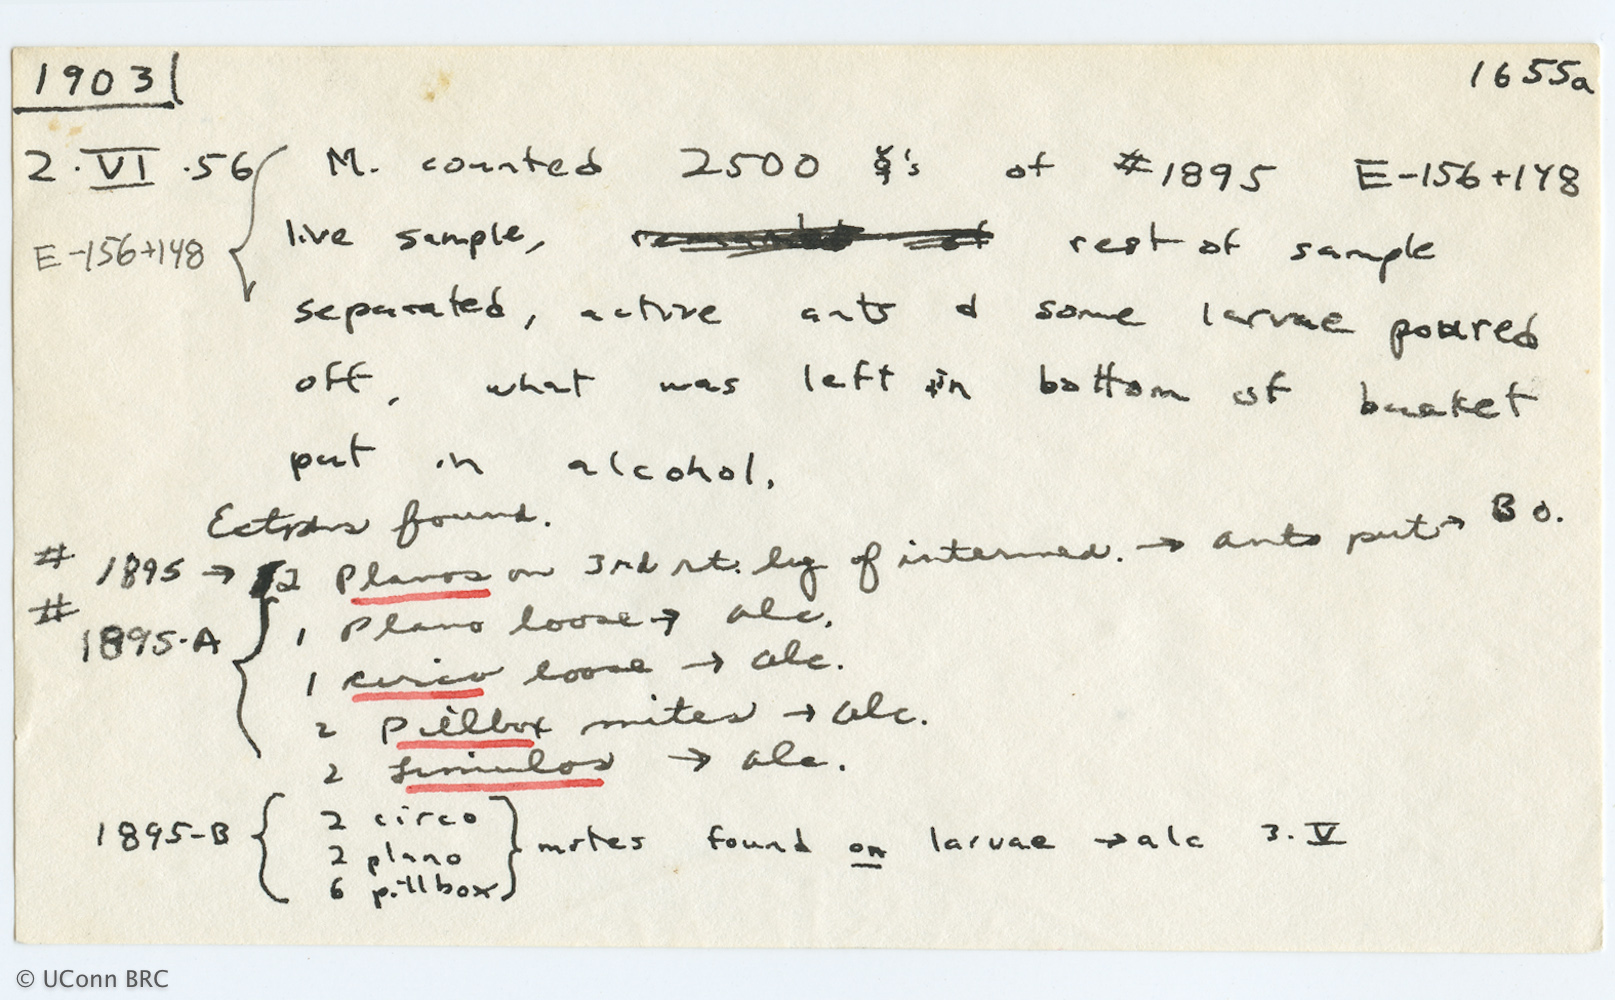 1903
1655a
2·VI·56 M. counted 2500 ☿'s of #1895 E-156+148
E-156+148 live sample, rest of sample
separated, active ants & some larvae poured
off, what was left in bottom of bucket
put in alcohol.
found.
# 1895 → 2 Planos on 3rd rt. leg of intermed. → ants put → B O.
# 1895-A 1 Plano loose → alc.
1 circo loose → alc.
2 Pillbox mites → alc.
2 Limulos → alc.
1895-B 2 circo
2 plano mites found on larvae → alc 3.V
6 pillbox
© UConn BRC